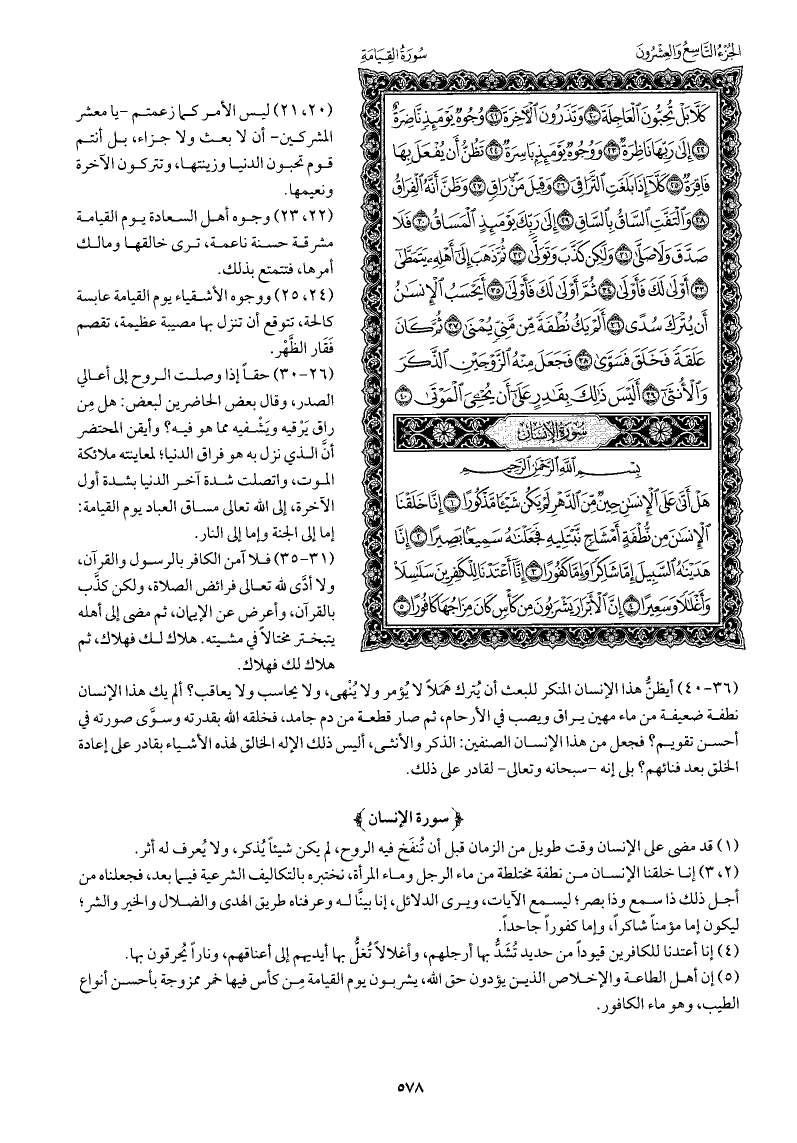 الجزء التاسع والعشرون
سورة القيامة
كَلَّا بَلْ تُحِبُّونَ ٱلْعَاجِلَةَ ٢٠ وَتَذَرُونَ ٱلْءَاخِرَةَ ٢١ وُجُوهٌ يَوْمَئِذٍ نَّاضِرَةٌ
٢٢ إِلَىٰ رَبِّهَا نَاظِرَةٌ ٢٣ وَوُجُوهٌ يَوْمَئِذٍۭ بَاسِرَةٌ ٢٤ تَظُنُّ أَن يُفْعَلَ بِهَا
فَاقِرَةٌ ٢٥ كَلَّآ إِذَا بَلَغَتِ ٱلتَّرَاقِيَ ٢٦ وَقِيلَ مَنْ رَاقٍ ٢٧ وَظَنَّ أَنَّهُ ٱلْفِرَاقُ
٢٨ وَٱلْتَفَّتِ ٱلسَّاقُ بِٱلسَّاقِ ٢٩ إِلَىٰ رَبِّكَ يَوْمَئِذٍ ٱلْمَسَاقُ ٣٠ فَلَا
صَدَّقَ وَلَا صَلَّىٰ ٣١ وَلَٰكِن كَذَّبَ وَتَوَلَّىٰ ٣٢ ثُمَّ ذَهَبَ إِلَىٰٓ أَهْلِهِۦ يَتَمَطَّىٰٓ
٣٣ أَوْلَىٰ لَكَ فَأَوْلَىٰ ٣٤ ثُمَّ أَوْلَىٰ لَكَ فَأَوْلَىٰٓ ٣٥ أَيَحْسَبُ ٱلْإِنسَٰنُ
أَن يُتْرَكَ سُدًى ٣٦ أَلَمْ يَكُ نُطْفَةً مِّن مَّنِىٍّ يُمْنَىٰ ٣٧ ثُمَّ كَانَ
عَلَقَةً فَخَلَقَ فَسَوَّىٰ ٣٨ فَجَعَلَ مِنْهُ ٱلزَّوْجَيْنِ ٱلذَّكَرَ
وَٱلْأُنثَىٰٓ ٣٩ أَلَيْسَ ذَٰلِكَ بِقَٰدِرٍ عَلَىٰٓ أَن يُحْۦِىَ ٱلْمَوْتَىٰ ٤٠
سورة الإنسان
بِسْمِ ٱللَّهِ ٱلرَّحْمَٰنِ ٱلرَّحِيمِ
هَلْ أَتَىٰ عَلَى ٱلْإِنسَٰنِ حِينٌ مِّنَ ٱلدَّهْرِ لَمْ يَكُن شَيْـًٔا مَّذْكُورًا ١ إِنَّا خَلَقْنَا
ٱلْإِنسَٰنَ مِن نُّطْفَةٍ أَمْشَاجٍ نَّبْتَلِيهِ فَجَعَلْنَٰهُ سَمِيعًۢا بَصِيرًا ٢ إِنَّا
هَدَيْنَٰهُ ٱلسَّبِيلَ إِمَّا شَاكِرًا وَإِمَّا كَفُورًا ٣ إِنَّآ أَعْتَدْنَا لِلْكَٰفِرِينَ سَلَٰسِلَا۟
وَأَغْلَٰلًا وَسَعِيرًا ٤ إِنَّ ٱلْأَبْرَارَ يَشْرَبُونَ مِن كَأْسٍ كَانَ مِزَاجُهَا كَافُورًا ٥
(٢٠، ٢١) ليس الأمر كما زعمتم -يا معشر
المشركين- أن لا بعث ولا جزاء، بل أنتم
قوم تحبون الدنيا وزينتها، وتتركون الآخرة
ونعيمها.
(٢٢، ٢٣) وجوه أهل السعادة يوم القيامة
مشرقة حسنة ناعمة، ترى خالقها ومالك
أمرها، فتتمتع بذلك.
(٢٤، ٢٥) ووجوه الأشقياء يوم القيامة عابسة
كالحة، تتوقع أن تنزل بها مصيبة عظيمة، تقصم
فَقَار الظَّهْر.
(٢٦-٣٠) حقاً إذا وصلت الروح إلى أعالي
الصدر، وقال بعض الحاضرين لبعض: هل مِن
راق يَرْقيه ويَشْفيه مما هو فيه؟ وأيقن المحتضر
أنَّ الذي نزل به هو فراق الدنيا؛ لمعاينته ملائكة
الموت، واتصلت شدة آخر الدنيا بشدة أول
الآخرة، إلى الله تعالى مساق العباد يوم القيامة:
إما إلى الجنة وإما إلى النار.
(٣١-٣٥) فلا آمن الكافر بالرسول والقرآن،
ولا أدَّى لله تعالى فرائض الصلاة، ولكن كذَّب
بالقرآن، وأعرض عن الإيمان، ثم مضى إلى أهله
يتبختر مختالاً في مشيته. هلاك لك فهلاك، ثم
هلاك لك فهلاك.
(٣٦-٤٠) أيظنُّ هذا الإنسان المنكر للبعث أن يُترك هَمَلاً لا يُؤمر ولا يُنْهى، ولا يحاسب ولا يعاقب؟ ألم يك هذا الإنسان
نطفة ضعيفة من ماء مهين يراق ويصب في الأرحام، ثم صار قطعة من دم جامد، فخلقه الله بقدرته وسوَّى صورته في
أحسن تقويم؟ فجعل من هذا الإنسان الصنفين: الذكر والأنثى، أليس ذلك الإله الخالق لهذه الأشياء بقادر على إعادة
الخلق بعد فنائهم؟ بلى إنه -سبحانه وتعالى- لقادر على ذلك.
﴿ سورة الإنسان ﴾
(١) قد مضى على الإنسان وقت طويل من الزمان قبل أن تُنفَخ فيه الروح، لم يكن شيئاً يُذكر، ولا يُعرف له أثر.
(٢، ٣) إنا خلقنا الإنسان من نطفة مختلطة من ماء الرجل وماء المرأة، نختبره بالتكاليف الشرعية فيما بعد، فجعلناه من
أجل ذلك ذا سمع وذا بصر؛ ليسمع الآيات، ويرى الدلائل، إنا بينَّا له وعرفناه طريق الهدى والضلال والخير والشر؛
ليكون إما مؤمناً شاكراً، وإما كفوراً جاحداً.
(٤) إنا أعتدنا للكافرين قيوداً من حديد تُشَدُّ بها أرجلهم، وأغلالاً تُغلُّ بها أيديهم إلى أعناقهم، وناراً يُحرقون بها.
(٥) إن أهل الطاعة والإخلاص الذين يؤدون حق الله، يشربون يوم القيامة مِن كأس فيها خمر ممزوجة بأحسن أنواع
الطيب، وهو ماء الكافور.
٥٧٨